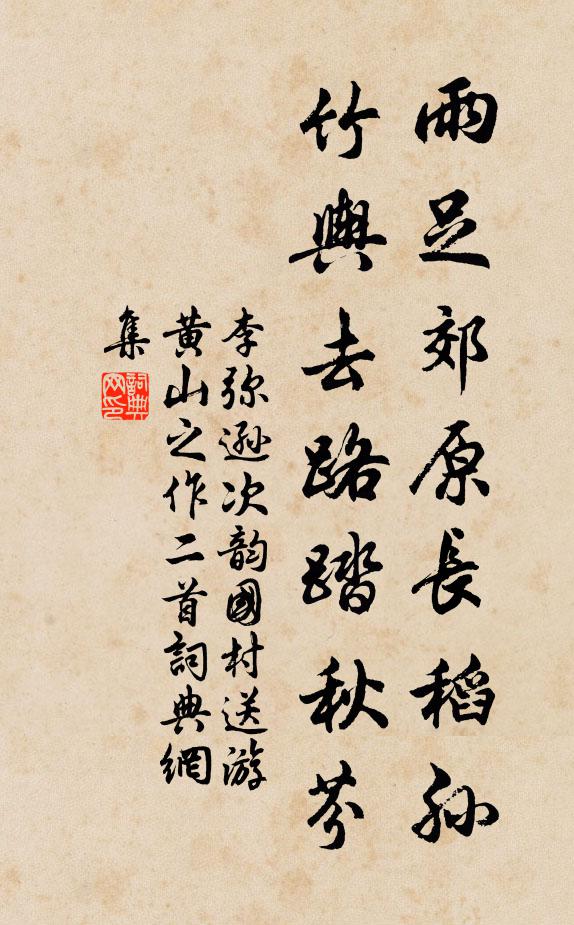 雨足郊原長稻孙
竹輿去路踏秋芬
李弥遜次韵國村送游
黄山之作二首詞典網
集
詞典网印